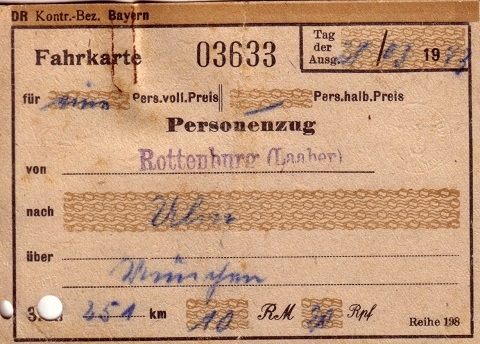 DR Kontr.-Bez. Bayern
Fahrkarte 03633 Tag der Ausg. /03 1943
für eine Pers.voll.Preis — Pers.halb.Preis
Personenzug
von Rottenburg (Laaber)
nach Ulm
über München
3. 251 km 10 RM Rpf
Reihe 198